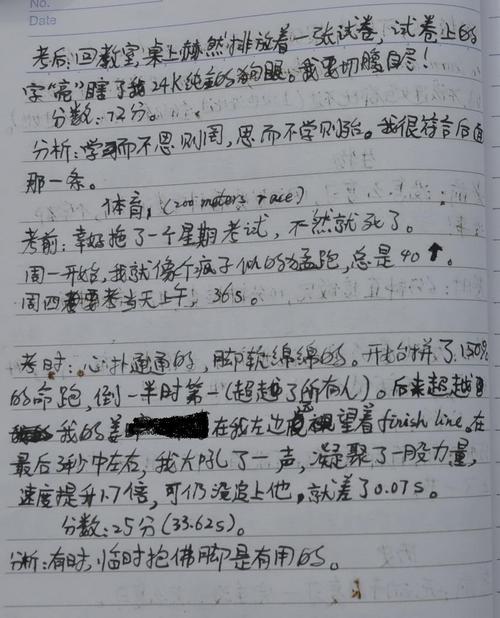 No.
Date
考后:回教室,桌上赫然排放着一张试卷,试卷上的
字"亮"瞎了我24K纯金的狗眼。我要切腹自尽!
分数:72分。
分析:学而不思则罔,思而不学则殆。我很符合后面
那一条。
体育,(200 meters race)
考前:幸好拖了一个星期考试,不然就死了。
周一开始,我就像个疯子似的猛跑,总是40↑。
周四要考当天上午,36s。
考时:心扑通通的,脚软绵绵的。开始拼了150%
的命跑,倒一半时第一(超越了所有人)。后来超越
我的姜 在我左边远望着finish line。在
最后3秒中左右,我大吼了一声,凝聚了一股力量,
速度提升1.7倍,可仍没追上他,就差了0.07s。
分数:25分(33.62s)。
分析:有时,临时抱佛脚是有用的。